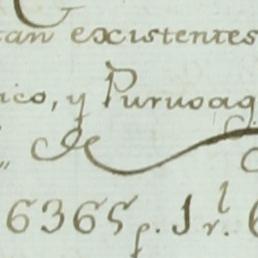 tan existentes
ico, y Puruoag
de
6365 p. 1 r.l 6